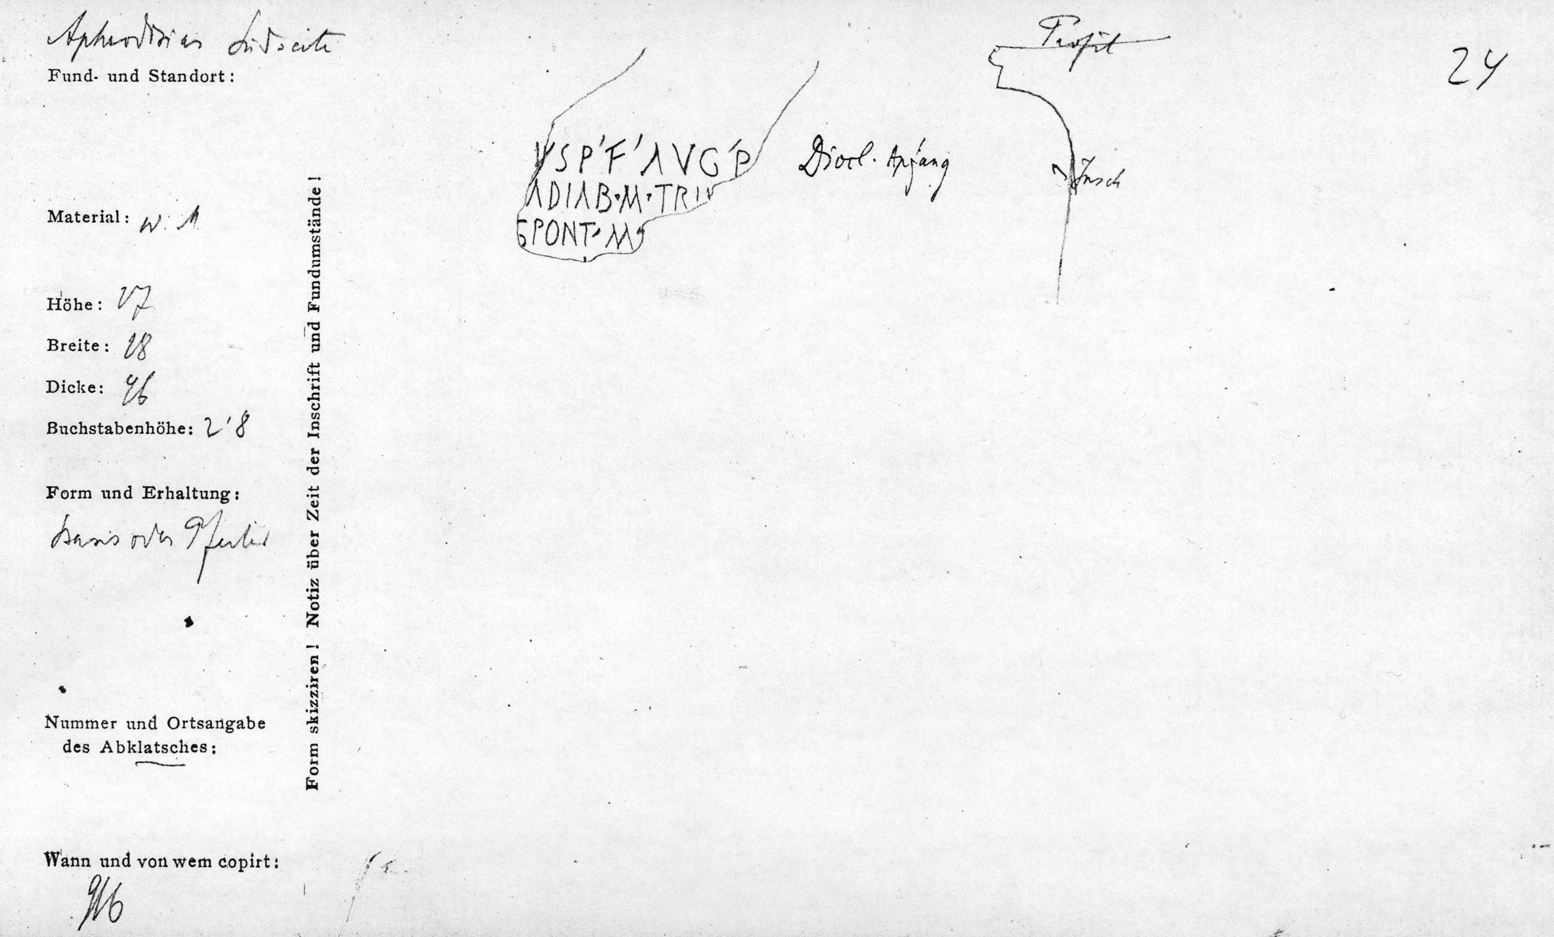 Aphrodisias Südseite
Fund- und Standort:
Material: w. M
Höhe: 17
Breite: 18
Dicke:
Buchstabenhöhe: 2'8
Form und Erhaltung:
Basis oder Pfeiler
Nummer und Ortsangabe
des Abklatsches:
Wann und von wem copirt:
Form skizziren! Notiz über Zeit der Inschrift und Fundumstände!
VSP'F'AVG'P
ADIAB·M·TRIV
PONT·M
Diocl. Anfang
Profil
Insch
24